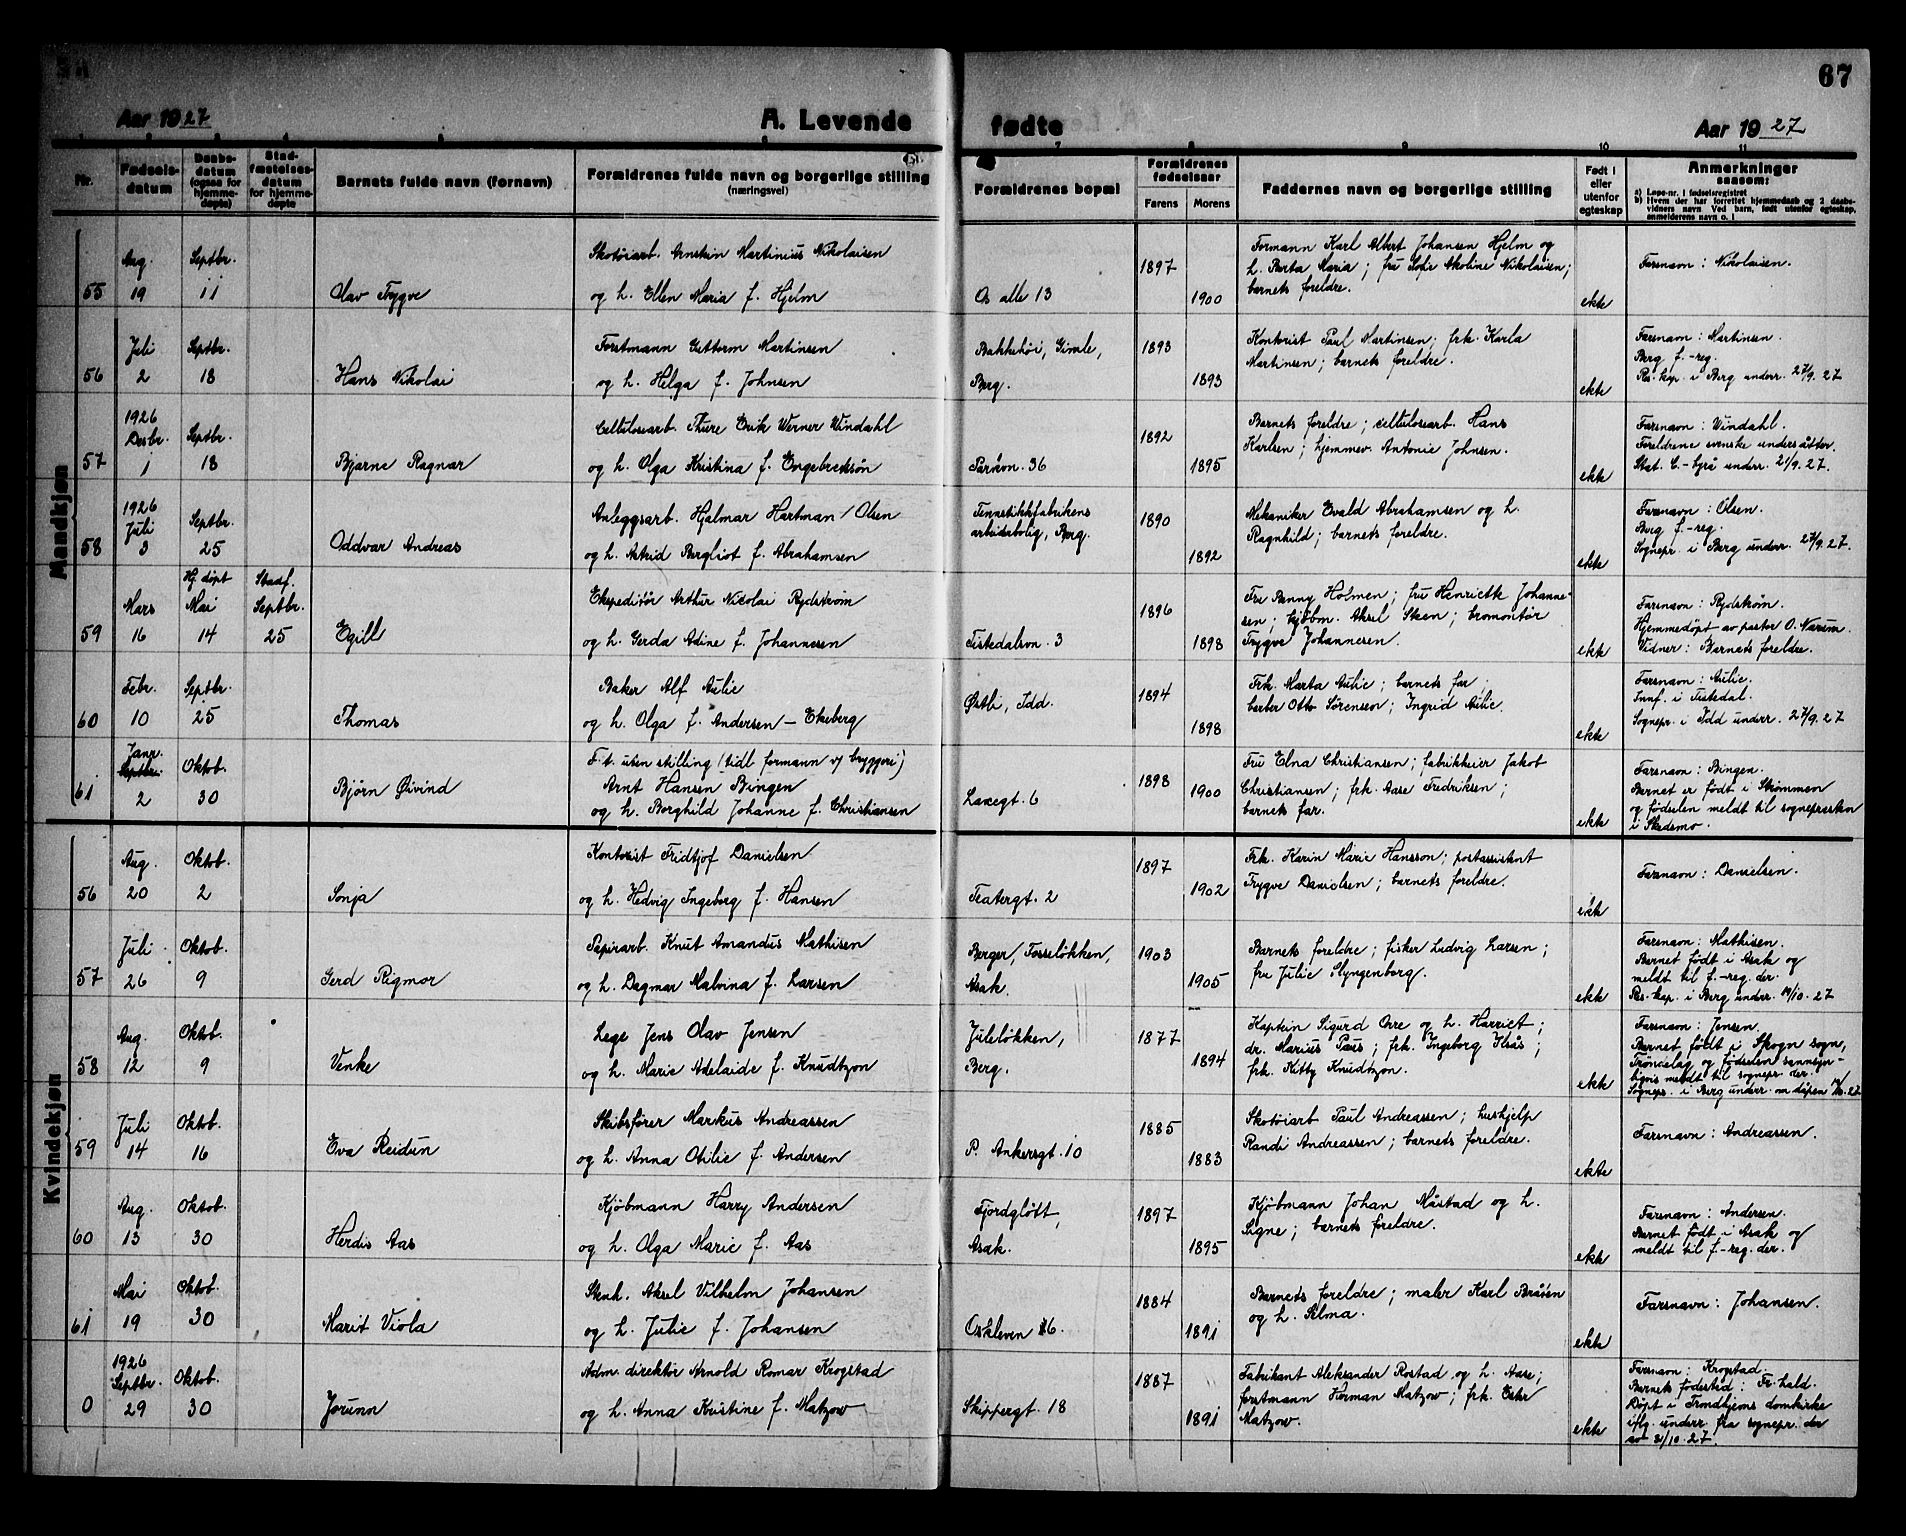 67
Aar 1927
A. Levende fødte
Aar 1927
7 8 9 10 11
Nr.
Fødsels-datum
Daabs-datum (ogsaa for hjemme-døpte)
Stad-fæstelses-datum for hjemme-døpte
Barnets fulde navn (fornavn)
Forældrenes fulde navn og borgerlige stilling
(næringsvei)
Forældrenes bopæl
Forældrenes fødselsaar
Farens
Morens
Faddernes navn og borgerlige stilling
Født i eller utenfor egteskap
Anmerkninger
saasom:
a) Løpe-nr. i fødselsregistret
b) Hvem der har forrettet hjemmedaab og 2 daabs-
vidners navn Ved barn, født utenfor egteskap,
anmelderens navn o. l
Mandkjøn
55
Aug. 19
Septbr. 11
Olav Trygve
Skotøiarb. Arnstein Martinius Nikolaisen
og h. Ellen Maria f. Hjelm
Os alle 13
1897
1900
Formann Karl Albert Johansen Hjelm og
h. Berta Maria; fru Sofie Akoline Nikolaisen;
barnets foreldre.
ekte
Farsnavn: Nikolaisen.
56
Juli 2
Septbr. 18
Hans Nikolai
Forstmann Guttorm Martinsen
og h. Helga f. Johnsen
Bakkehøi, Gimle,
Berg.
1893
1893
Kontorist Paul Martinsen; frk. Karla
Martinsen; barnets foreldre.
ekte
Farsnavn: Martinsen.
Berg f.-reg.
Res. kap. i Berg underr. 27/9.27
57
1926 Desbr. 1
Septbr. 18
Bjarne Ragnar
Cellulosearb. Thure Erik Verner Windahl
og h. Olga Kristina f. Engebretsøn
Parøvn. 36
1892
1895
Barnets foreldre; cellulosearb. Hans
Karlsen; hjemmev. Antonie Johnsen.
ekte
Farsnavn: Windahl.
Foreldrene svenske undersåtter.
Stat. C.-byrå underr. 21/9.27.
58
1926 Juli 3
Septbr. 25
Oddvar Andreas
Anleggsarb. Hjalmar Hartman Olsen
og h. Astrid Bergliot f. Abrahamsen
Fennstikkfabrikens
arbeiderbolig, Berg.
1890
1892
Mekaniker Evald Abrahamsen og h.
Ragnhild; barnets foreldre.
ekte
Farsnavn: Olsen.
Berg f.-reg.
Sognepr. i Berg underr. 27/9.27.
59
Mars 16
Hj. døpt Mai 14
Stadf. Septbr. 25
Egill
Ekspeditør Arthur Nicolai Rydstrøm
og h. Gerda Adine f. Johannesen
Tistedalsvn. 3
1896
1898
Fru Fanny Holmen; fru Henriette Johanne-
sen; kjøbm. Aksel Steen; bromontør
Trygve Johannesen.
ekte
Farsnavn: Rydstrøm.
Hjemmedøpt av pastor O. Narum.
Vidner: Barnets foreldre.
60
Febr. 10
Septbr. 25
Thomas
Baker Alf Aulie
og h. Olga f. Andersen - Ekeberg
Østli, Idd.
1894
1898
Frk. Marta Aulie; barnets far;
barber Otto Sørensen; Ingrid Aulie.
ekte
Farsnavn: Aulie.
Innf. i Tistedal.
Sognepr. i Idd underr. 27/9.27
61
Janr. Septbr. 2
Oktob. 30
Bjørn Øivind
F. t. uten stilling (tidl. formann v/ bryggeri)
Arnt Hansen Bingen
og h. Borghild Johanne f. Christiansen
Laxegt. 6
1898
1900
Fru Elna Christiansen; fabrikkeier Jakob
Christiansen; frk. Aase Fredriksen;
barnets far.
ekte
Farsnavn: Bingen.
Barnet er født i Strømmen
og fødselen meldt til sognepresten
i Skedsmo.
Kvindekjøn
56
Aug. 20
Oktob. 2
Sonja
Kontorist Fridtjof Danielsen
og h. Hedvig Ingeborg f. Hansen
Teatergt. 2
1897
1902
Frk. Karin Marie Hansson; postassistent
Trygve Danielsen; barnets foreldre.
ekte
Farsnavn: Danielsen.
57
Juli 26
Oktob. 9
Gerd Rigmor
Papirarb. Knut Amandus Mathisen
og h. Dagmar Malvina f. Larsen
Berger, Fosseløkken,
Asak.
1903
1905
Barnets foreldre; fisker Ludvig Larsen;
fru Julie Slyngenborg.
ekte
Farsnavn: Mathisen.
Barnet født i Asak og
meldt til f.-reg. der.
Res. kap. i Berg underr. 19/10.27
58
Aug. 12
Oktob. 9
Venke
Lege Jens Olav Jensen
og h. Marie Adelaide f. Knudtzon
Juleløkken,
Berg.
1877
1894
Kaptein Sigurd Orre og h. Harriet;
dr. Marius Paus; frk. Ingeborg Ilsås;
frk. Kitty Knudtzon.
ekte
Farsnavn: Jensen.
Barnet født i Skogn sogn,
Trøndelag og fødselen sannsyn-
ligvis meldt til sognepr. der.
Sognepr. i Berg underr. om dåpen 19/10.27
59
Juli 14
Oktob. 16
Eva Reidun
Skibsfører Markus Andreassen
og h. Anna Otilie f. Andersen
P. Ankersgt. 10
1885
1883
Skotøiarb Paul Andreassen; hushjelp
Randi Andreassen; barnets foreldre.
ekte
Farsnavn: Andreassen.
60
Aug. 13
Oktob. 30
Herdis Aas
Kjøbmann Harry Andersen
og h. Olga Marie f. Aas
Fjordgløtt,
Asak.
1897
1895
Kjøbmann Johan Måstad og h.
Signe; barnets foreldre.
ekte
Farsnavn: Andersen.
Barnet født i Asak og
meldt til f.-reg. der.
61
Mai 19
Oktob. 30
Marit Viola
Stenh. Aksel Vilhelm Johansen
og h. Julie f. Johansen
Oskleven 16.
1884
1891
Barnets foreldre; maler Karl Bråten
og h. Selma.
ekte
Farsnavn: Johansen.
0
1926 Septbr. 29
Oktob. 30
Jorunn
Adm. direktør Arnold Romar Krogstad
og h. Anna Kristine f. Matzow
Skippergt. 18
1887
1891
Fabrikant Aleksander Rostad og h. Aase;
forstmann Herman Matzow; frk. Ester
Matzow.
ekte
Farsnavn: Krogstad.
Barnets fødested: Fr.hald.
Døpt i Trondhjems domkirke
iflg. underr. fra sognepr. der
av 31/10.27.